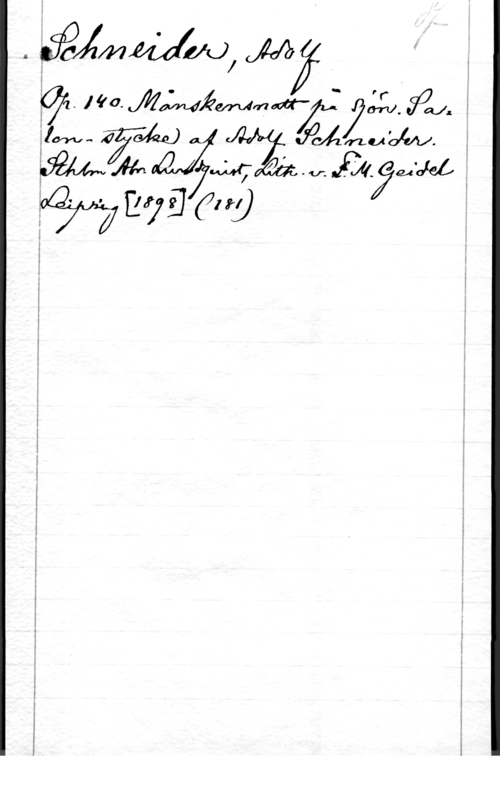 Schneider, Adolf
Op. 140. Månskensnatt på sjön. Sa-
lon-stycke af Adolf Schneider.
Sthlm Abr. Lundquist, Lith. v. F. M. Geidel
Leipzig [1898] (181)